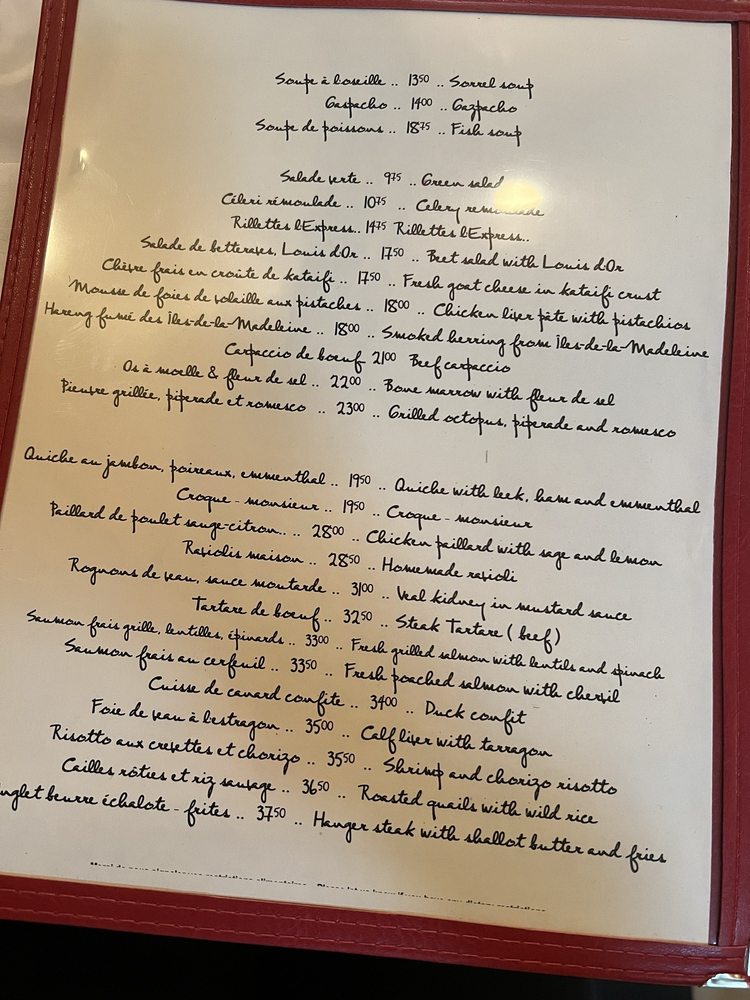 Soupe à l'oseille .. 13⁵⁰ .. Sorrel soup
Gaspacho .. 14⁰⁰ .. Gazpacho
Soupe de poissons .. 18⁷⁵ .. Fish soup
Salade verte .. 9⁷⁵ .. Green salad
Céleri rémoulade .. 10⁷⁵ .. Celery remoulade
Rillettes l'Express.. 14⁷⁵ Rillettes l'Express..
Salade de betteraves, Louis d'Or .. 17⁵⁰ .. Beet salad with Louis d'Or
Chèvre frais en croûte de kataifi .. 17⁵⁰ .. Fresh goat cheese in kataifi crust
Mousse de foies de volaille aux pistaches .. 18⁰⁰ .. Chicken liver pâté with pistachios
Hareng fumé des Îles-de-la-Madeleine .. 18⁰⁰ .. Smoked herring from Îles-de-la-Madeleine
Carpaccio de boeuf 21⁰⁰ Beef carpaccio
Os à moelle & fleur de sel .. 22⁰⁰ .. Bone marrow with fleur de sel
Pieuvre grillée, piperade et romesco .. 23⁰⁰ .. Grilled octopus, piperade and romesco
Quiche au jambon, poireaux, emmenthal .. 19⁵⁰ .. Quiche with leek, ham and emmenthal
Croque - monsieur .. 19⁵⁰ .. Croque - monsieur
Paillard de poulet sauge-citron.. .. 28⁰⁰ .. Chicken paillard with sage and lemon
Raviolis maison .. 28⁵⁰ .. Homemade ravioli
Rognons de veau, sauce moutarde .. 31⁰⁰ .. Veal kidney in mustard sauce
Tartare de bœuf .. 32⁵⁰ .. Steak Tartare ( beef)
Saumon frais grille, lentilles, épinards .. 33⁰⁰ .. Fresh grilled salmon with lentils and spinach
Saumon frais au cerfeuil .. 33⁵⁰ .. Fresh poached salmon with chervil
Cuisse de canard confite .. 34⁰⁰ .. Duck confit
Foie de veau à l'estragon .. 35⁰⁰ .. Calf liver with tarragon
Risotto aux crevettes et chorizo .. 35⁵⁰ .. Shrimp and chorizo risotto
Cailles rôties et riz sauvage .. 36⁵⁰ .. Roasted quails with wild rice
nglet beurre échalote - frites .. 37⁵⁰ .. Hanger steak with shallot butter and fries